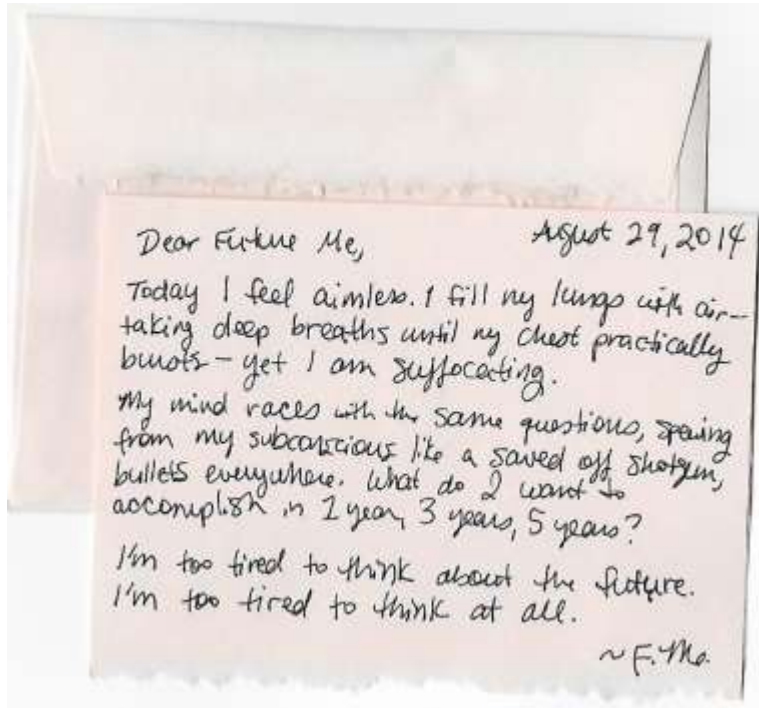 August 29, 2014
Dear Future Me,
Today I feel aimless. I fill my lungs with air—
taking deep breaths until my chest practically
bursts — yet I am suffocating.
My mind races with the same questions, spewing
from my subconscious like a sawed off shotgun,
bullets everywhere. What do I want to
accomplish in 1 year, 3 years, 5 years?
I'm too tired to think about the future.
I'm too tired to think at all.
~ F. Mo.